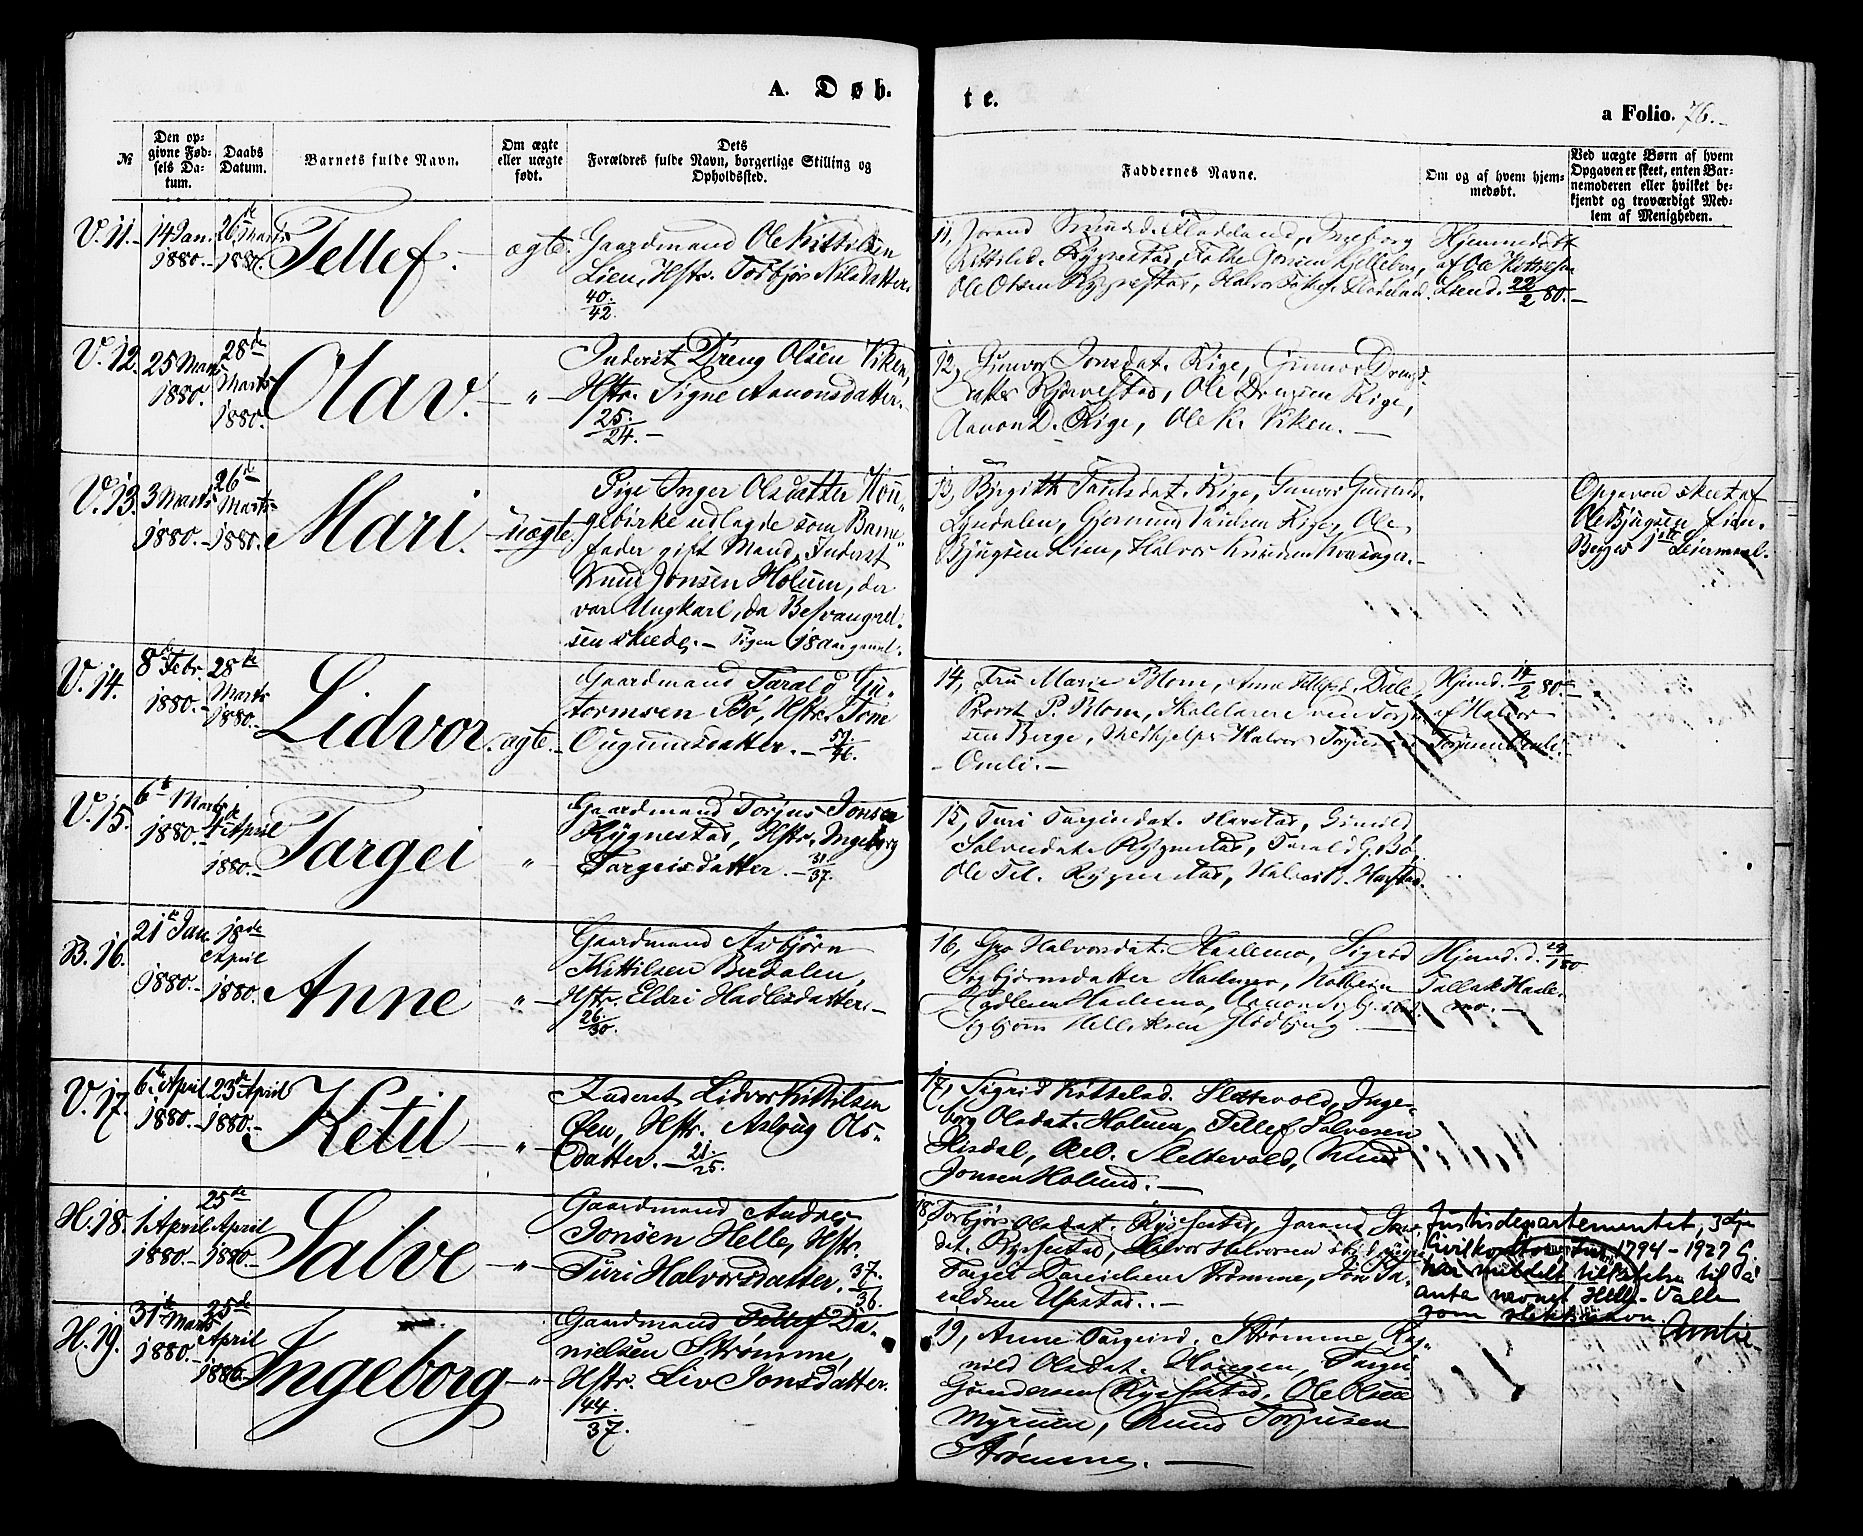 A. Døb-
te.
a Folio. 76.
№
Den opgivne Fødsels Datum.
Daabs Datum.
Barnets fulde Navn.
Om ægte eller uægte født.
Dets Forældres fulde Navn, borgerlige Stilling og Opholdssted.
Faddernes Navne.
Om og af hvem hjemmedøbt.
Ved uægte Børn af hvem Opgaven er skeet, enten Barnemoderen eller hvilket bekjendt og troværdigt Medlem af Menigheden.
V. 11. 14 Jan. 1880. 26de Marts 1880. Tellef. ægte.
Gaardmand Ole Kittilsen
Lien, Hstr. Torbjør Nilsdatter.
40/42
11, Jorand Ingeborg
Kittilsd. Rygnestad,
Ole Olsen Rygnestad, Halvor
Hjemmedøbt
af Ole Kittilsen
22/2 80.
V. 12. 25 Marts 1880. 28de Marts 1880. Olav. "
Inderst Dreng Olsen Viken,
Hstr. Signe Aanonsdatter.
25/24.
12, Gunvor Jonsdat. Rige, Gunvor Drengs-
datter Rjørvestad, Ole Drengsen Rige,
Aanon D. Rige, Ole K. Viken.
V. 13. 3 Marts 1880. 26de Marts 1880. Mari. uægte.
Pige Inger Olsdatter Hon-
gebirke udlagde som Barne-
fader gift Mand, Inderst
Knud Jonsen Holum, der
var Ungkarl, da Besvangrel-
sen skede. Pigen 18 aar gammel.
13, Birgith Paulsdat. Rige, Gunvor
Lyndalen, Gjermund Paulsen Rige, Ole
Bjugsen Lien, Halvor Knudsen
Opgaven skeet af
Ole Bjugsen Lien.
Begges 1ste Leiermaal.
V. 14. 8de Febr. 1880. 28de Marts 1880. Lidvor. ægte.
Gaardmand Tarald Gu-
tormsen Bø, Hstr. Tone
Ougundsdatter.
14, Fru Marie Blom, Anne
Provst P. Blom, Skolelærer
sen Berge, Medhjelper Halvor Torjusen
Omli.
Hjmd. 14/2 80.
af Halvor
Torjusen Omli.
V. 15. 6te Marts 1880. 4de April 1880. Targei "
Gaardmand Torjus Jonsen
Rygnestad, Hstr. Ingeborg
Targeisdatter. 31/37.
15, Turi Targeisdat. Harstad, Gunild
Salvesdat. Rygnestad, Tarald G. Bø,
Ole Tel. Rygnestad, Halvor Harstad.
B. 16. 21de Jan. 1880. 18de April 1880. Anne "
Gaardmand Asbjørn
Kittilsen Berdalen,
Hstr. Eldri Hadlesdatter.
26/30.
16, Gro Halvorsdat. Haslemo, Sigrid
Sigbjørnsdatter
Sigbjørn
Hjmd. d. 29/1 80
Tallak Hasle-
mo.
V. 17. 6te April 1880. 23de April 1880. Ketil "
Inderst Lidvor Kittilsen
Øen, Hstr. Aslaug Ols-
datter. 21/25.
17, Sigrid Kittelsd. Slettevold, Inge-
borg Olsdat. Holum, Tellef Salvesen
Hisdal, Slettevold, Knud
Jonsen Holum.
H. 18. 1 April 1880. 25de April 1880. Salve "
Gaardmand Andres
Jonsen Helle, Hstr.
Turi Halvorsdatter. 37/36.
18, Torbjør Olsdat. Rysstad, Jorand
dat. Rysstad, Halvor Halvorsen
Targei Strømme, Jon Ta-
raldsen Upstad.
Justisdepartementet, 3dje
Civilkontor 1794-1927 G.
har meddelt tilladelse til å
anta navnet Helle-Valle
som slektsnavn.
H. 19. 31te Marts 1880. 25de April 1880. Ingeborg "
Gaardmand Tellef Da-
nielsen Strømme,
Hstr. Liv Jonsdatter.
44/37.
19, Anne Targeisd. Strømme, Rag-
nild Olsdat. Haugen, Targei
Gundersen Rysstad, Ole Olsen
Myrum, Knud Torjusen
Strømme.